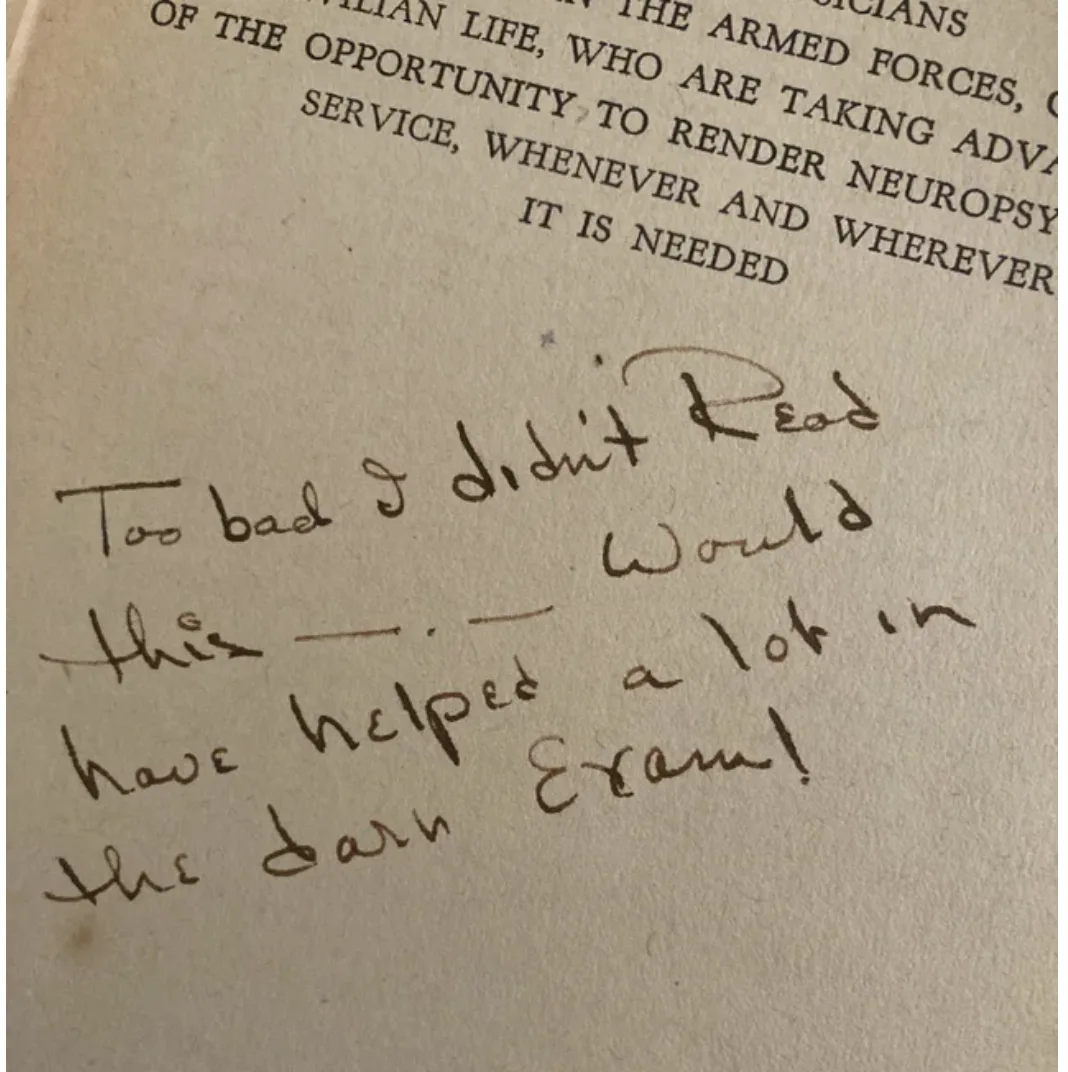 THE ARMED FORCES,
LIFE, WHO ARE TAKING
OF THE OPPORTUNITY TO RENDER
SERVICE, WHENEVER AND WHEREVER
IT IS NEEDED
Too bad I didn't Read
this —.— Would
have helped a lot in
the darn Exam!